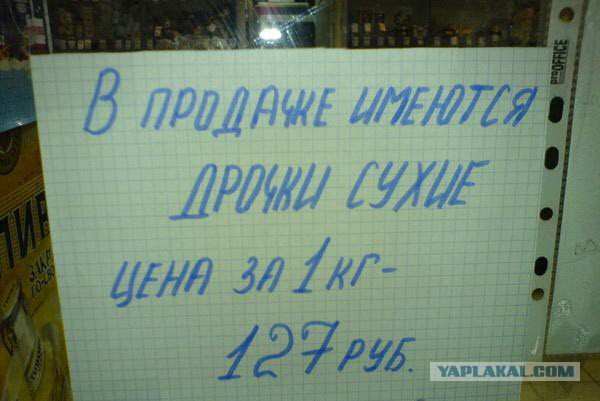 В ПРОДАЖЕ ИМЕЮТСЯ
ДРОЧКИ СУХИЕ
ЦЕНА ЗА 1 КГ-
127 РУБ.
proOFFICE
ПИВ
YAPLAKAL.COM